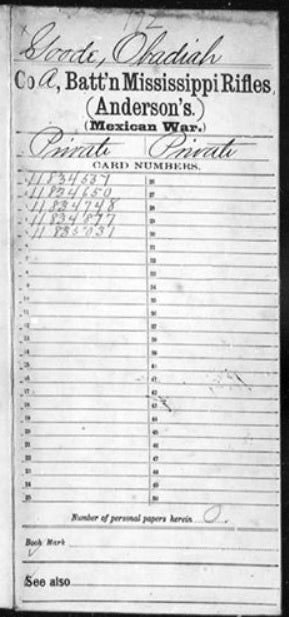 172
Goode, Obadiah
Co A, Batt'n Mississippi Rifles
(Anderson's.)
(Mexican War.)
Private Private
CARD NUMBERS.
1 11834537 26
2 11834650 27
3 11834748 28
4 11834877 29
5 11835031 30
6 31
7 32
8 33
9 34
10 35
11 36
12 37
13 38
14 39
15 40
16 41
17 42
18 43
19 44
20 45
21 46
22 47
23 48
24 49
25 50
Number of personal papers herein 0.
Book Mark
See also